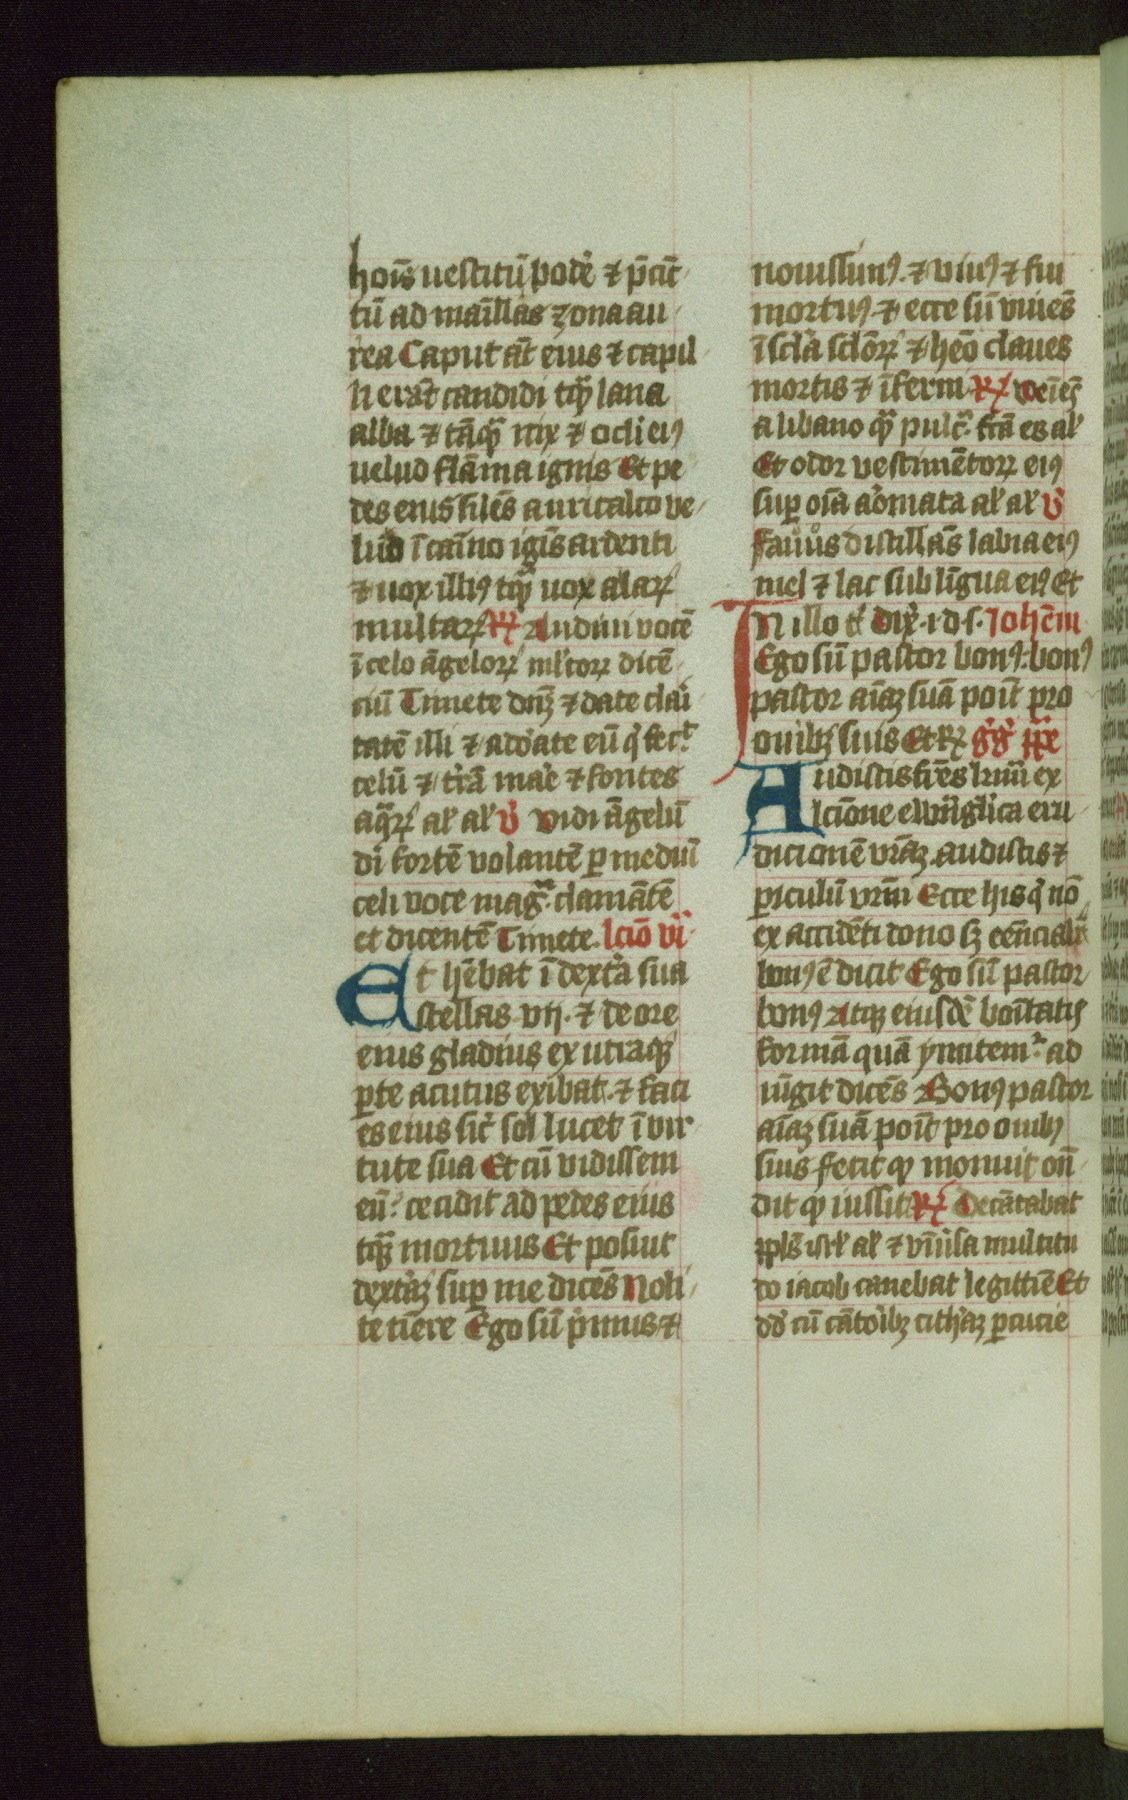 hoīs vestitū podē ⁊ p̄cīc
tū ad mamīllas zona au
rea Caput āt eius ⁊ capil
li erāt candidi tq̄ lana
alba ⁊ tāq̄ nix ⁊ ocli eiꝰ
velud flāma ignis Et pe
des eius siles auricalco ve
lud ī camīno ignis ardenti
⁊ vox illiꝰ tq̄ vox aquaꝝ
multaꝝ R̄ Audiui vocē
ī celo āgeloꝝ mltoꝝ dicē
ciū Timete dn̄ꝫ ⁊ date clari
tatē illi ⁊ adorate eū qͥ fecͭ
celū ⁊ tr̄ā mare ⁊ fontes
aqͣꝝ al' al' V̄ Vidi āgelū
dī fortē volantē ꝑ mediū
celi voce magͣ clamātē
et dicentē Timete. lcīo vi
Et hēbat ī dextra sua
stellas. vij. ⁊ de ore
eius gladius ex utraqꝫ
ꝑte acutus exibat. ⁊ faci
es eius sic̄ sol lucet ī vir
tute sua Et cū vidissem
eū: cecidit ad pedes eius
tq̄ꝫ mortuus Et posuit
dextrāꝫ suꝑ me dicēs Noli
te timere Ego sū p̄mus ⁊
nouissimꝰ. ⁊ viuꝰ ⁊ fui
mortuꝰ. ⁊ ecce sū viuēs
ī scl'a scl'oꝝ ⁊ hēo claues
mortis ⁊ īferni R̄ Veniēs
a libano q̄ pulcͣ fc̄a es al'
Et odor vestimētoꝝ eiꝰ
suꝑ oīa aromata al' al' V̄
Fauus distillās labia eiꝰ
mel ⁊ lac sub lingua eiꝰ Et
In illo t̄ Dix̄. i. d. s. Johēm
Ego sū pastor bonꝰ: bonꝰ
pastor aīaꝫ suā poīt pro
ouibꝫ suis Et R̄ g̊g̊ pp̄e
Audistis fr̄es kr̄mi ex
lcīone ewāgl'ica eru
dicionē vr̄aꝫ. audistis ⁊
ꝑiculū vrm̄ Ecce his qͥ nō
ex accidēti dono sꝫ eēncialīt
bonꝰ ē dicit Ego sū pastor
bonꝰ Atqꝫ eiusdē boītatis
formā quā ymitemͬ ad
iūgit dicēs Bonꝰ pastor
aīaꝫ suā poīt pro ouibꝫ
suis fecit qꝫ monuit on̄
dit qꝫ iussit R̄ Decātabat
ppl's isrl' al' ⁊ vniūsa multitu
do iacob canebat legittime Et
dd̄ cū cātoribꝫ citharāꝫ ꝑcucie